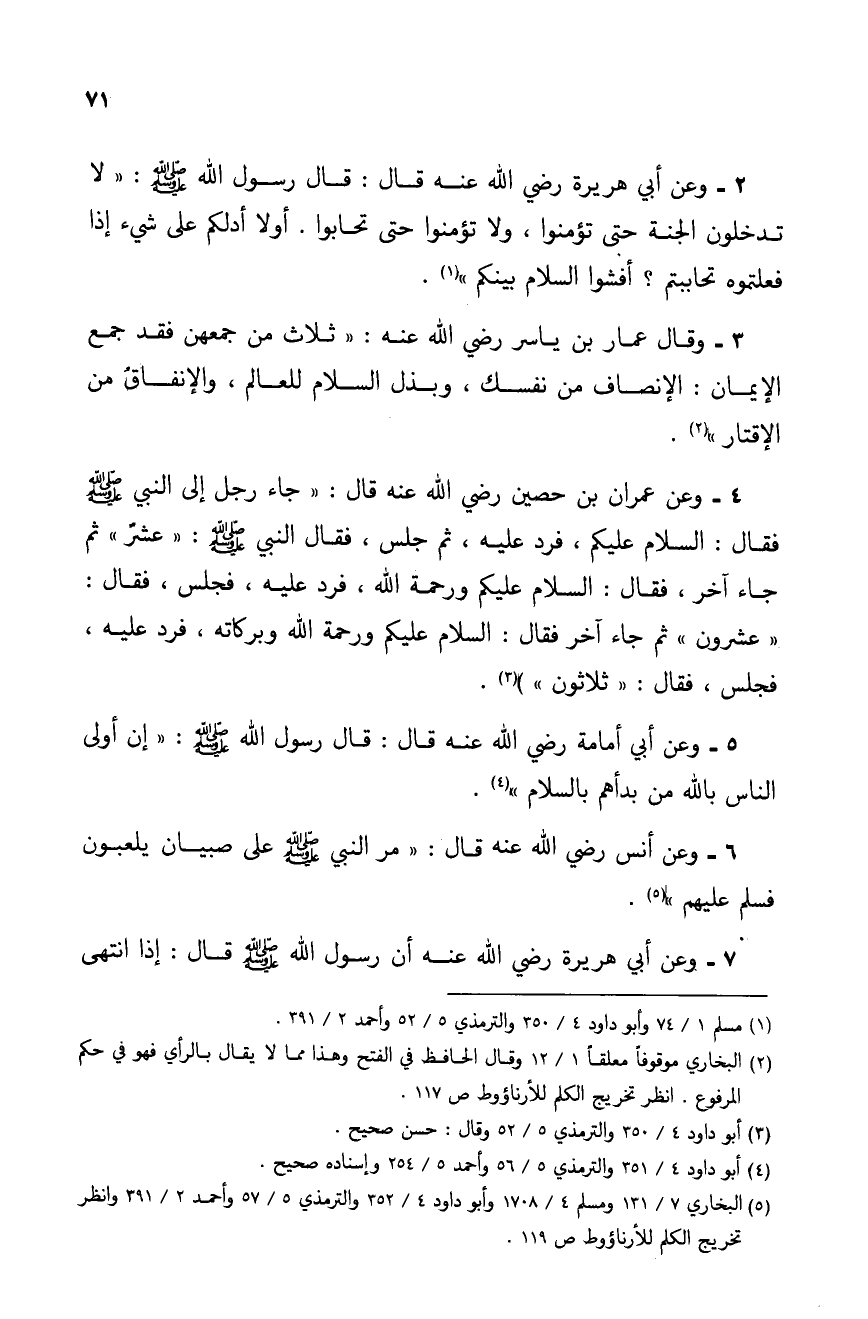 ٧١
٢ ـ وعن أبي هريرة رضي الله عنه قال : قال رسول الله ﷺ : « لا
تدخلون الجنة حتى تؤمنوا ، ولا تؤمنوا حتى تحابوا . أولا أدلكم على شيء إذا
فعلتموه تحاببتم ؟ أفشوا السلام بينكم »(١) .
٣ ـ وقال عمار بن ياسر رضي الله عنه : « ثلاث من جمعهن فقد جمع
الإيمان : الإنصاف من نفسك ، وبذل السلام للعالم ، والإنفاقُ من
الإقتار »(٢) .
٤ ـ وعن عمران بن حصين رضي الله عنه قال : « جاء رجل إلى النبي ﷺ
فقال : السلام عليكم ، فرد عليه ، ثم جلس ، فقال النبي ﷺ : « عشرٌ » ثم
جاء آخر ، فقال : السلام عليكم ورحمة الله ، فرد عليه ، فجلس ، فقال :
« عشرون » ثم جاء آخر فقال : السلام عليكم ورحمة الله وبركاته ، فرد عليه ،
فجلس ، فقال : « ثلاثون » )(٣) .
٥ ـ وعن أبي أمامة رضي الله عنه قال : قال رسول الله ﷺ : « إن أولى
الناس بالله من بدأهم بالسلام »(٤) .
٦ ـ وعن أنس رضي الله عنه قال : « مر النبي ﷺ على صبيان يلعبون
فسلم عليهم »(٥) .
٧ ـ وعن أبي هريرة رضي الله عنه أن رسول الله ﷺ قال : إذا انتهى
(١) مسلم ١ / ٧٤ وأبو داود ٤ / ٣٥٠ والترمذي ٥ / ٥٢ وأحمد ٢ / ٣٩١ .
(٢) البخاري موقوفاً معلقاً ١ / ١٢ وقال الحافظ في الفتح وهذا مما لا يقال بالرأي فهو في حكم
المرفوع . انظر تخريج الكلم للأرناؤوط ص ١١٧ .
(٣) أبو داود ٤ / ٣٥٠ والترمذي ٥ / ٥٢ وقال : حسن صحيح .
(٤) أبو داود ٤ / ٣٥١ والترمذي ٥ / ٥٦ وأحمد ٥ / ٢٥٤ وإسناده صحيح .
(٥) البخاري ٧ / ١٣١ ومسلم ٤ / ١٧٠٨ وأبو داود ٤ / ٣٥٢ والترمذي ٥ / ٥٧ وأحمد ٢ / ٣٩١ وانظر
تخريج الكلم للأرناؤوط ص ١١٩ .